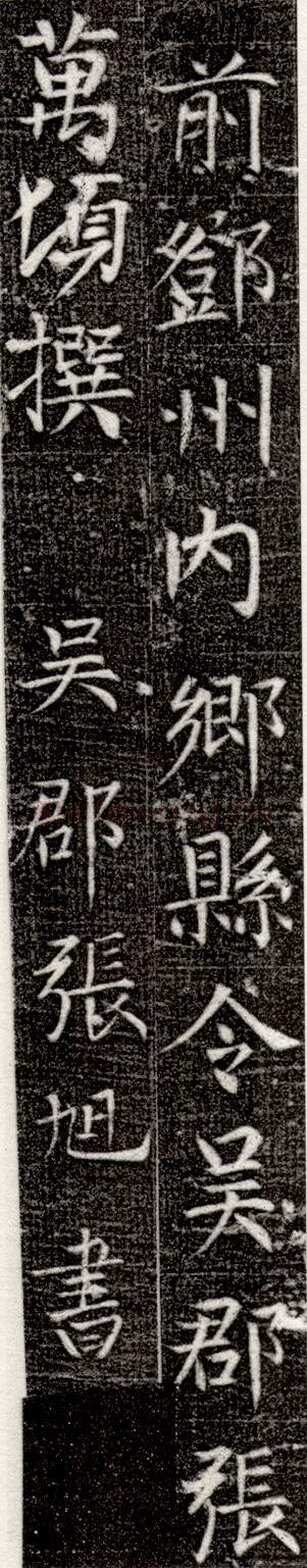 前鄧州内鄉縣令吳郡張
萬頃撰 吳郡張旭書